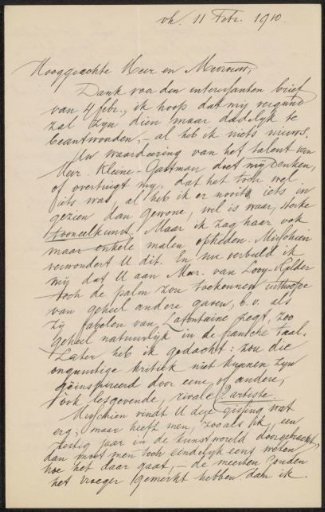 vh 11 Febr. 1910
Hooggeachte Heer en Mevrouw,
Dank voor den interessanten brief
van 4 febr., ik hoop dat mij vergund
zal zijn dien maar dadelijk te
beantwoorden, – al heb ik niets nieuws.
Uw waardeering van het talent van
Mevr. Kleine-Gastman doet mij denken,
of overtuigt mij, dat het toch wel
iets was, al heb ik er nooit iets in
gezien dan gewone, wel is waar, sterke
tooneelkunst. Maar ik zag haar ook
maar enkele malen optreden. Misschien
verwondert U dit. En nu verbeeld ik
mij dat U aan Mevr. van Looy-Gelder
toch de palm zou toekennen
van geheel andere gaven, b.v. als
zij fabelen van Lafontaine zegt, zoo
geheel natuurlijk in de fransche taal.
Later heb ik gedacht: zou die
ongunstige kritiek niet kunnen zijn
geïnspireerd door eene, of andere,
ook lesgevende, rivale? artieste
Misschien vindt U deze gissing wat
erg; maar heeft men, zooals ik, een
jaar in de kunstwereld doorgebracht
dan moet men toch eindelijk eens weten
hoe het daar gaat, – de meesten zouden
het vroeger gemerkt hebben dan ik